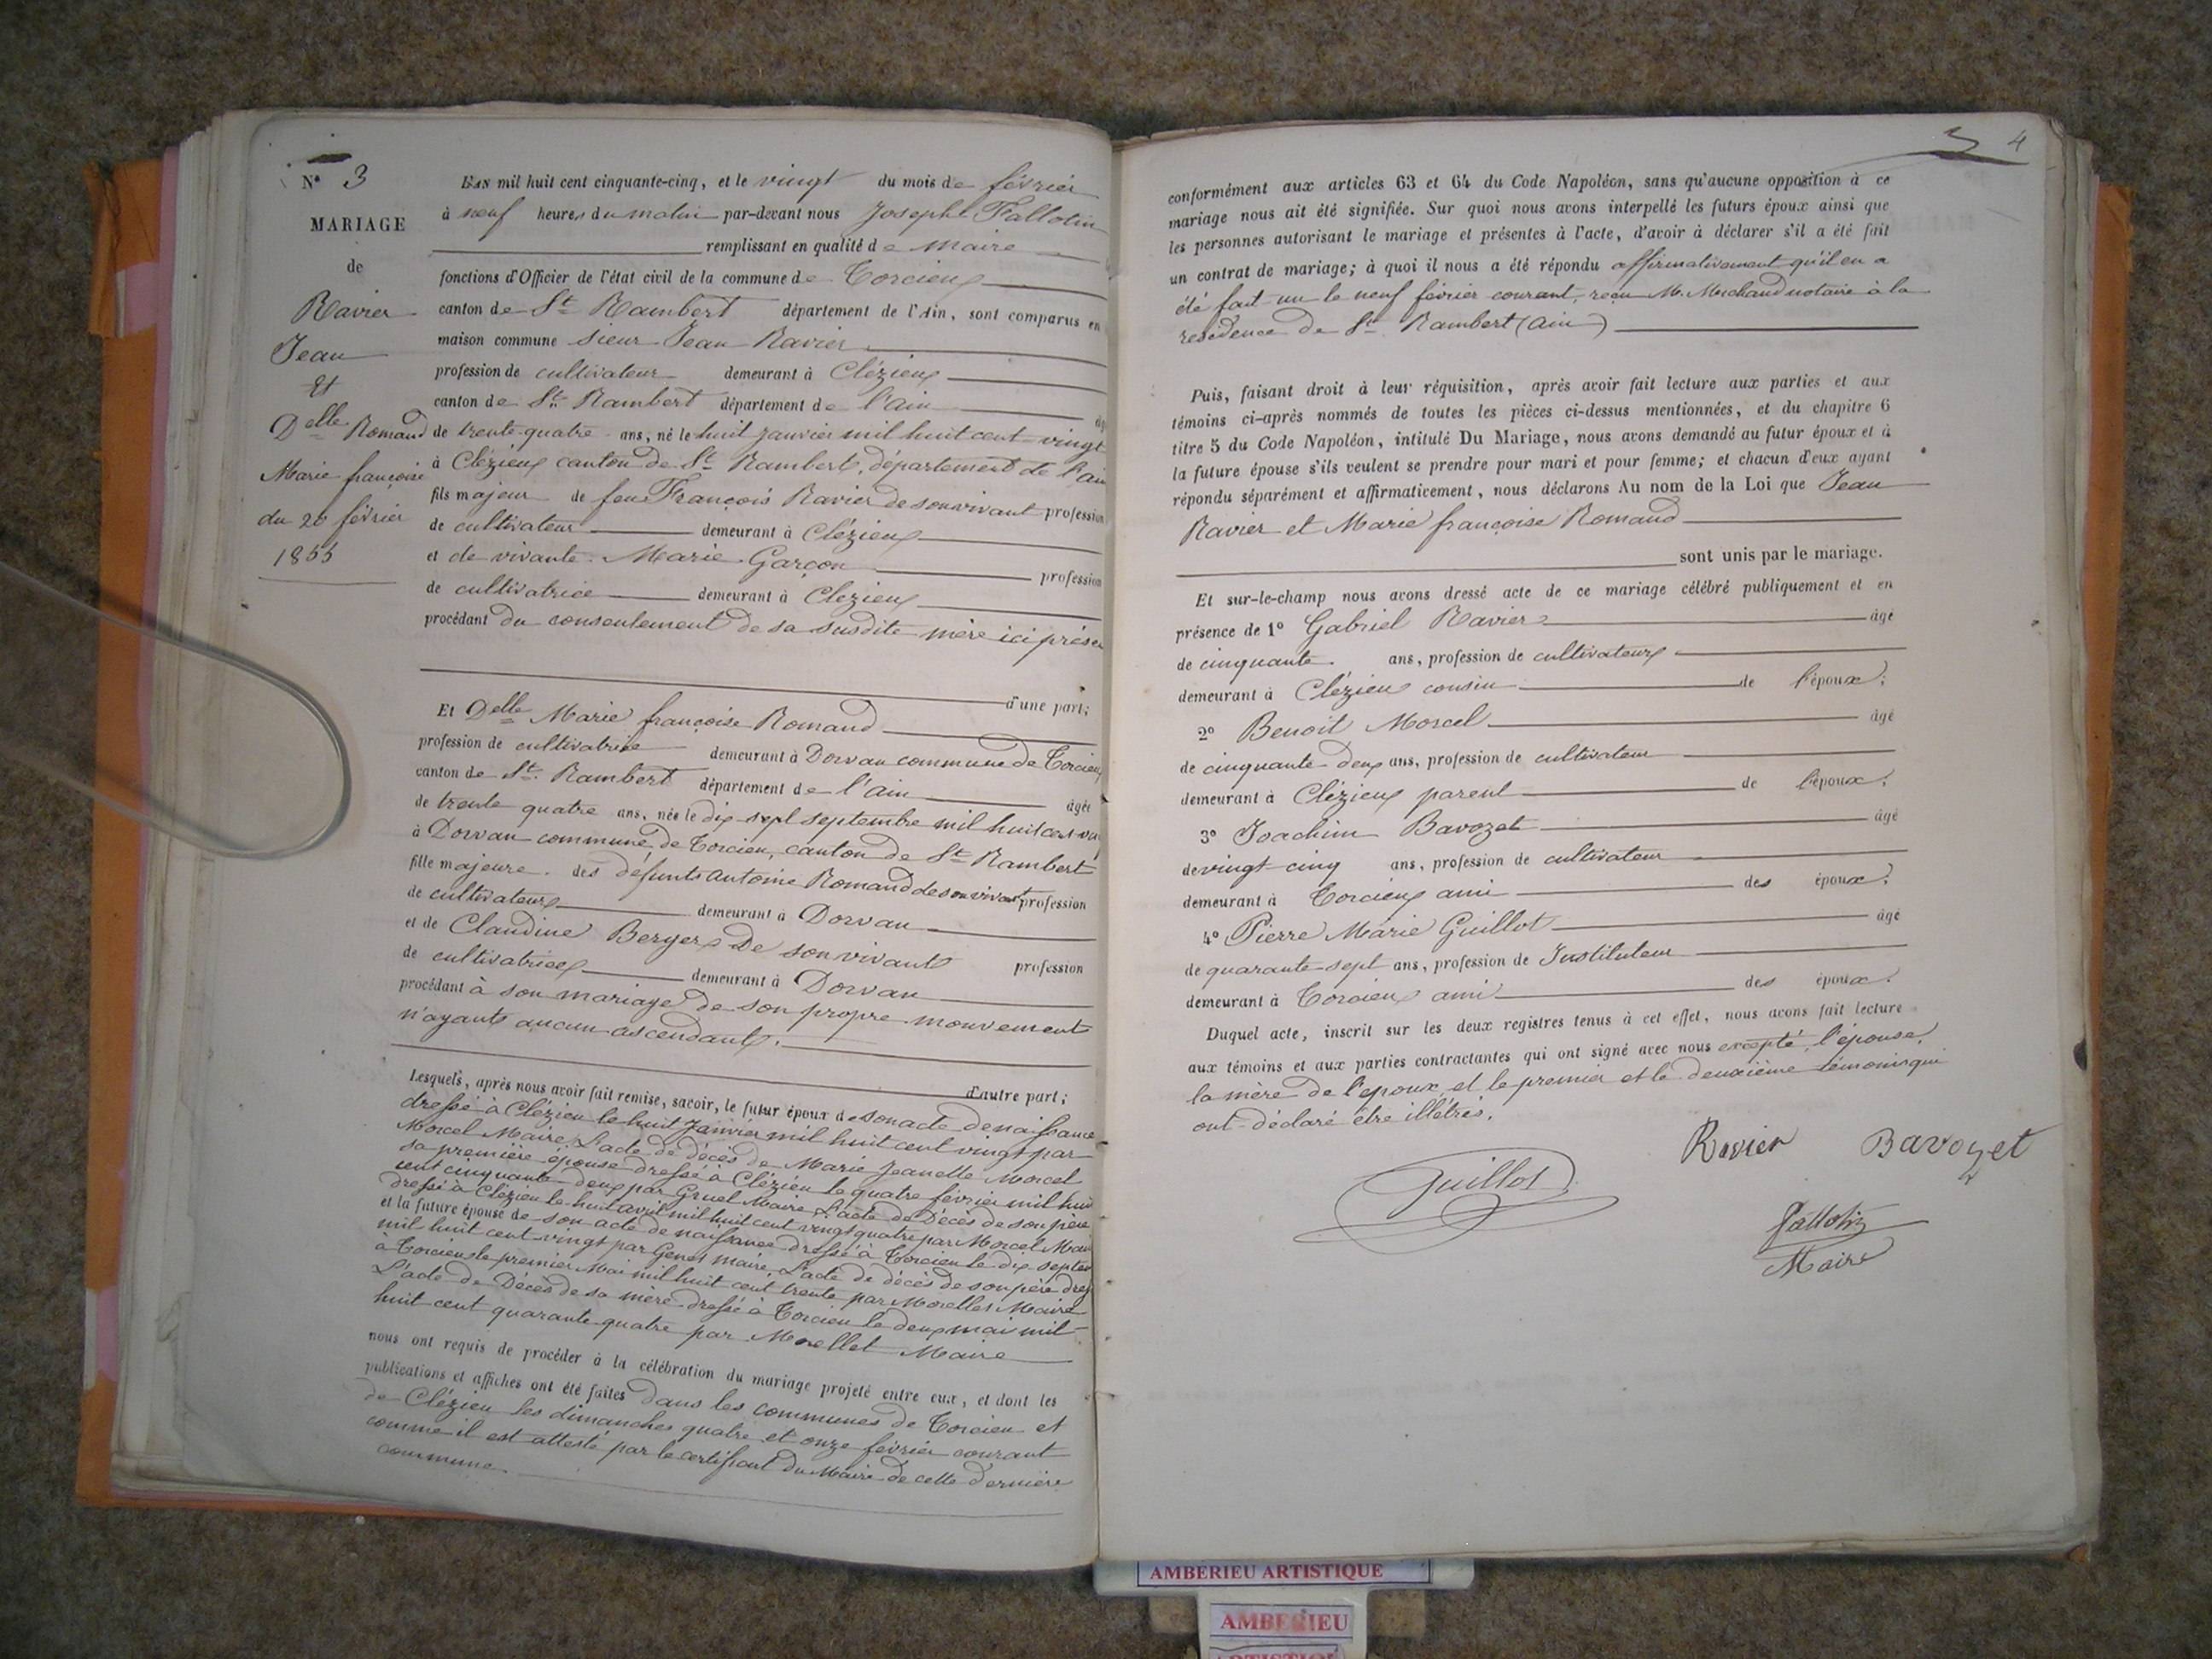 N° 3
MARIAGE
de
Ravier
Jean
et
Delle Romand
Marie françoise
du 20 février
1855
L'AN mil huit cent cinquante-cinq, et le vingt du mois de février
à neuf heures du matin par-devant nous Joseph Fallotin
remplissant en qualité de maire
fonctions d'Officier de l'état civil de la commune de Torcieux
canton de St Rambert département de l'Ain, sont comparus en
maison commune sieur Jean Ravier
profession de cultivateur demeurant à Clézieux
canton de St Rambert département de l'ain
de trente-quatre ans, né le huit janvier mil huit cent vingt
à Clézieux canton de St Rambert, département de l'ain
fils majeur de feu François Ravier de son vivant profession
de cultivateur demeurant à Clézieux
et de vivante Marie Garçon profession
de cultivatrice demeurant à Clézieux
procédant du consentement de sa susdite mère ici présen
d'une part;
Et Delle Marie françoise Romand
profession de cultivatrice demeurant à Dorvan commune de Torcieux
canton de St Rambert département de l'ain âgée
de trente quatre ans, née le dix-sept septembre mil huit cent
à Dorvan commune de Torcieu, canton de St Rambert
fille majeure des défunts Antoine Romand de son vivant profession
de cultivateur demeurant à Dorvan
et de Claudine Berger De son vivant profession
de cultivatrice demeurant à Dorvan
procédant à son mariage de son propre mouvement
n'ayant aucun ascendant.
d'autre part;
Lesquels, après nous avoir fait remise, savoir, le futur époux de son acte de naissance
dressé à Clézieu le huit Janvier mil huit cent vingt par
Morcel Maire, L'acte de décès de Marie Jeanette Morcel
sa première épouse dressé à Clézieu le quatre février mil huit
cent cinquante-deux par Gruel Maire, L'acte de Décès de son père
dressé à Clézieu le huit avril mil huit cent vingt quatre par Morcel Mai
et la future épouse de son acte de naissance dressé à Torcieu le dix-septem
mil huit cent vingt par Genet maire, L'acte de décès de son père dres
à Torcieu le premier Mai mil huit cent trente par Morellet Maire
L'acte de Décès de sa mère dressé à Torcieu le deux mai mil
huit cent quarante quatre par Morellet Maire
nous ont requis de procéder à la célébration du mariage projeté entre eux, et dont les
publications et affiches ont été faites dans les communes de Torcieu et
de Clézieu les dimanches quatre et onze février courant
comme il est attesté par le certificat du Maire de cette dernière
commune.
4
conformément aux articles 63 et 64 du Code Napoléon, sans qu'aucune opposition à ce
mariage nous ait été signifiée. Sur quoi nous avons interpellé les futurs époux ainsi que
les personnes autorisant le mariage et présentes à l'acte, d'avoir à déclarer s'il a été fait
un contrat de mariage; à quoi il nous a été répondu affirmativement qu'il en a
été fait un le neuf février courant, reçu Me Merchand notaire à la
residence de St Rambert (ain)
Puis, faisant droit à leur réquisition, après avoir fait lecture aux parties et aux
témoins ci-après nommés de toutes les pièces ci-dessus mentionnées, et du chapitre 6
titre 5 du Code Napoléon, intitulé Du Mariage, nous avons demandé au futur époux et à
la future épouse s'ils veulent se prendre pour mari et pour femme; et chacun d'eux ayant
répondu séparément et affirmativement, nous déclarons Au nom de la Loi que Jean
Ravier et Marie françoise Romand
sont unis par le mariage.
Et sur-le-champ nous avons dressé acte de ce mariage célébré publiquement et en
présence de 1° Gabriel Ravier âgé
de cinquante ans, profession de cultivateur
demeurant à Clézieu cousin de l'époux;
2° Benoit Morcel âgé
de cinquante-deux ans, profession de cultivateur
demeurant à Clézieux parent de l'époux;
3° Joachim Bavozet âgé
de vingt-cinq ans, profession de cultivateur
demeurant à Torcieux ami des époux;
4° Pierre Marie Guillot âgé
de quarante-sept ans, profession de Instituteur
demeurant à Torcieux ami des époux.
Duquel acte, inscrit sur les deux registres tenus à cet effet, nous avons fait lecture
aux témoins et aux parties contractantes qui ont signé avec nous excepté l'épouse,
la mère de l'époux et le premier et le deuxième témoins qui
ont déclaré être illétrés.
Ravier Bavozet
Guillot
Fallotin
Maire
AMBERIEU ARTISTIQUE
AMBERIEU
ARTISTIQUE